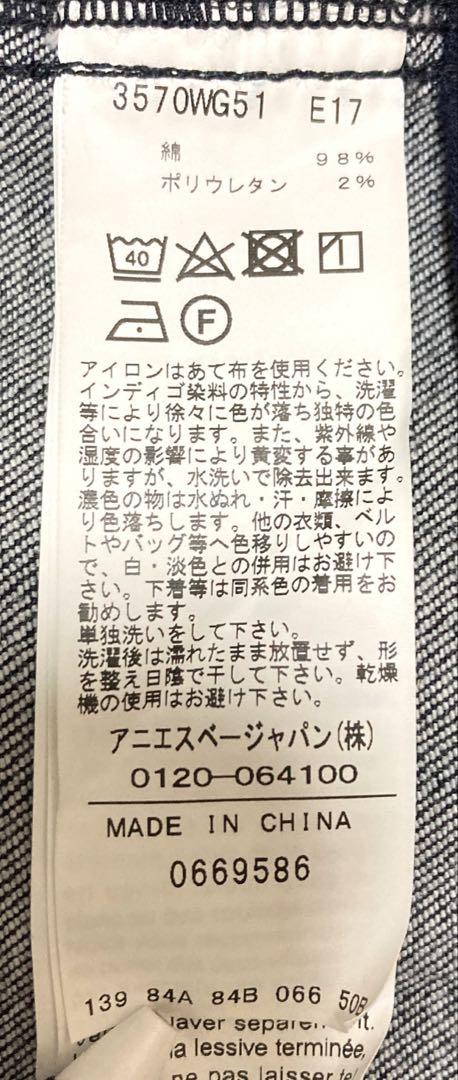 3570WG51 E17
綿 98%
ポリウレタン 2%
40
F
アイロンはあて布を使用ください。
インディゴ染料の特性から、洗濯
等により徐々に色が落ち独特の色
合いになります。また、紫外線や
湿度の影響により黄変する事があ
りますが、水洗いで除去出来ます。
濃色の物は水ぬれ・汗・摩擦によ
り色落ちします。他の衣類、ベル
トやバッグ等へ色移りしやすいの
で、白・淡色との併用はお避け下
さい。下着等は同系色の着用をお
勧めします。
単独洗いをして下さい。
洗濯後は濡れたまま放置せず、形
を整え日陰で干して下さい。乾燥
機の使用はお避け下さい。
アニエスベージャパン(株)
0120-064100
MADE IN CHINA
0669586
139 84A 84B 066 50B
laver
la lessive terminée,
ne pas laisser